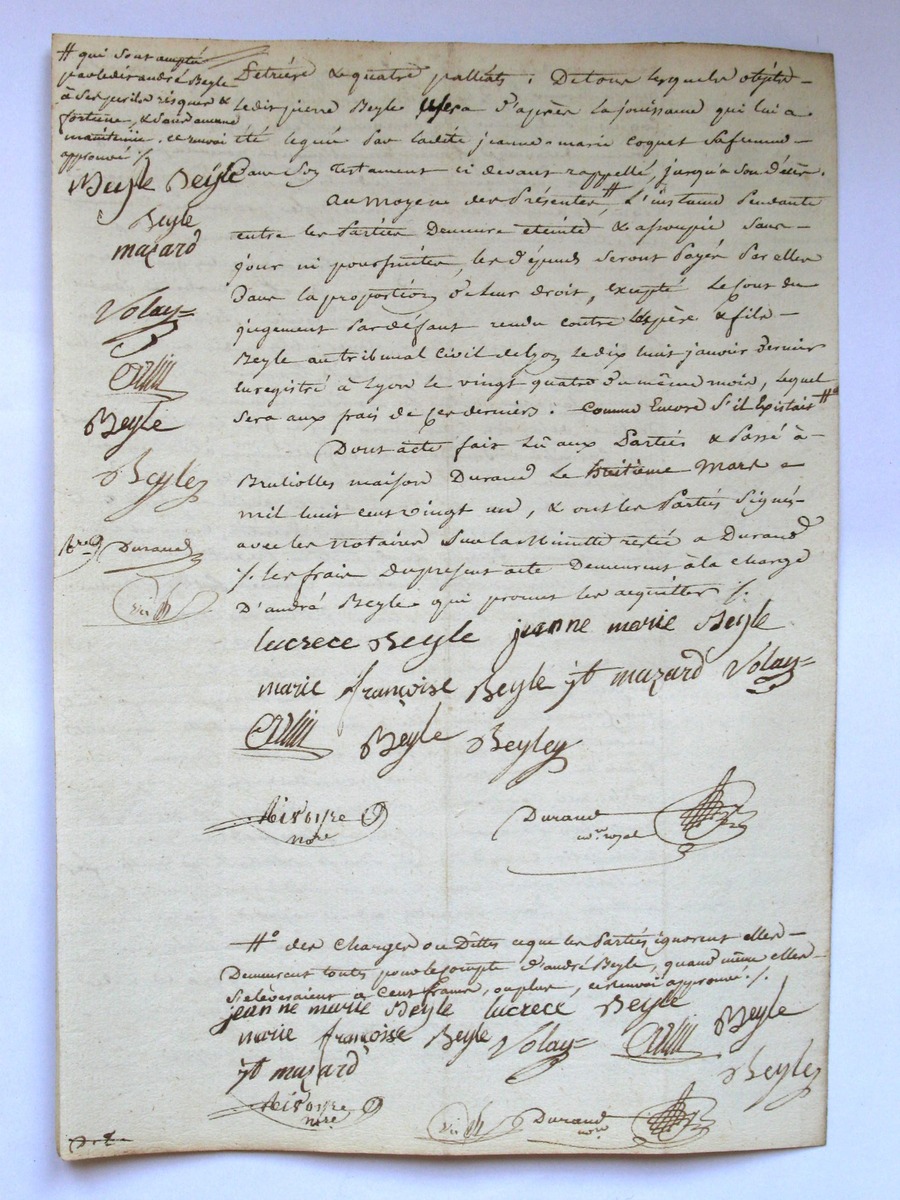 # qui sont accepté
par ledit andré Beyle
à ses perils risques &
fortune, & sans aucune
maintenüe. ce renvoi
approuvé /.
Beyle Beyle
Beyle
mazard
Volay
Beyle
Beyle
Durand
Petrière & quatre paillats : De tous lesquels objets
ledit pierre Beyle usera d'après la jouissance qui lui a
été leguée Par ladite jeanne-marie coquet sa femme
Dans son testament ci devant rappellé, jusqu'a son décès.
Au moyene des Présentes #, L'instance Pendante
entre les Parties Demeure éteinte & assoupie Sans
jour ni poursuites, les dépends seront Payés Par elles
Dans la proportion de leur droit, excepté le cout du
jugement Par défaut rendu contre les père & fils
Beyle au tribunal Civil de Lyon le dix huit janvier dernier
Enregistré à Lyon le vingt quatre du même mois, lequel
sera aux frais de ces derniers : comme Encore s'il Existait #°
Dont acte fait Lû aux Parties & Passé à
Brulliolles maison Durand Le huitième Mars
mil huit cent vingt un, & ont les Parties Signé
avec les Notaires Sur la Minutte restée a Durand
/. les frais du present acte Demeurent à la charge
D'andré Beyle qui promet les acquitter /.
lucrece Beyle jeanne marie Beyle
marie françoise Beyle jt mazard Volay
Beyle Beyle
nore
Durand
nre royal
#° des Charges ou Dettes ce que les Parties ignorent elles
Demeurent toutes pour le compte d'andré Beyle, quand même elles
s'elèveraient a Cent francs, ou plus, ce renvoi approuvé. /.
jeanne marie Beyle lucrece Beyle
marie françoise Beyle Volay Beyle
jt mazard Beyle
nre
Durand
nre